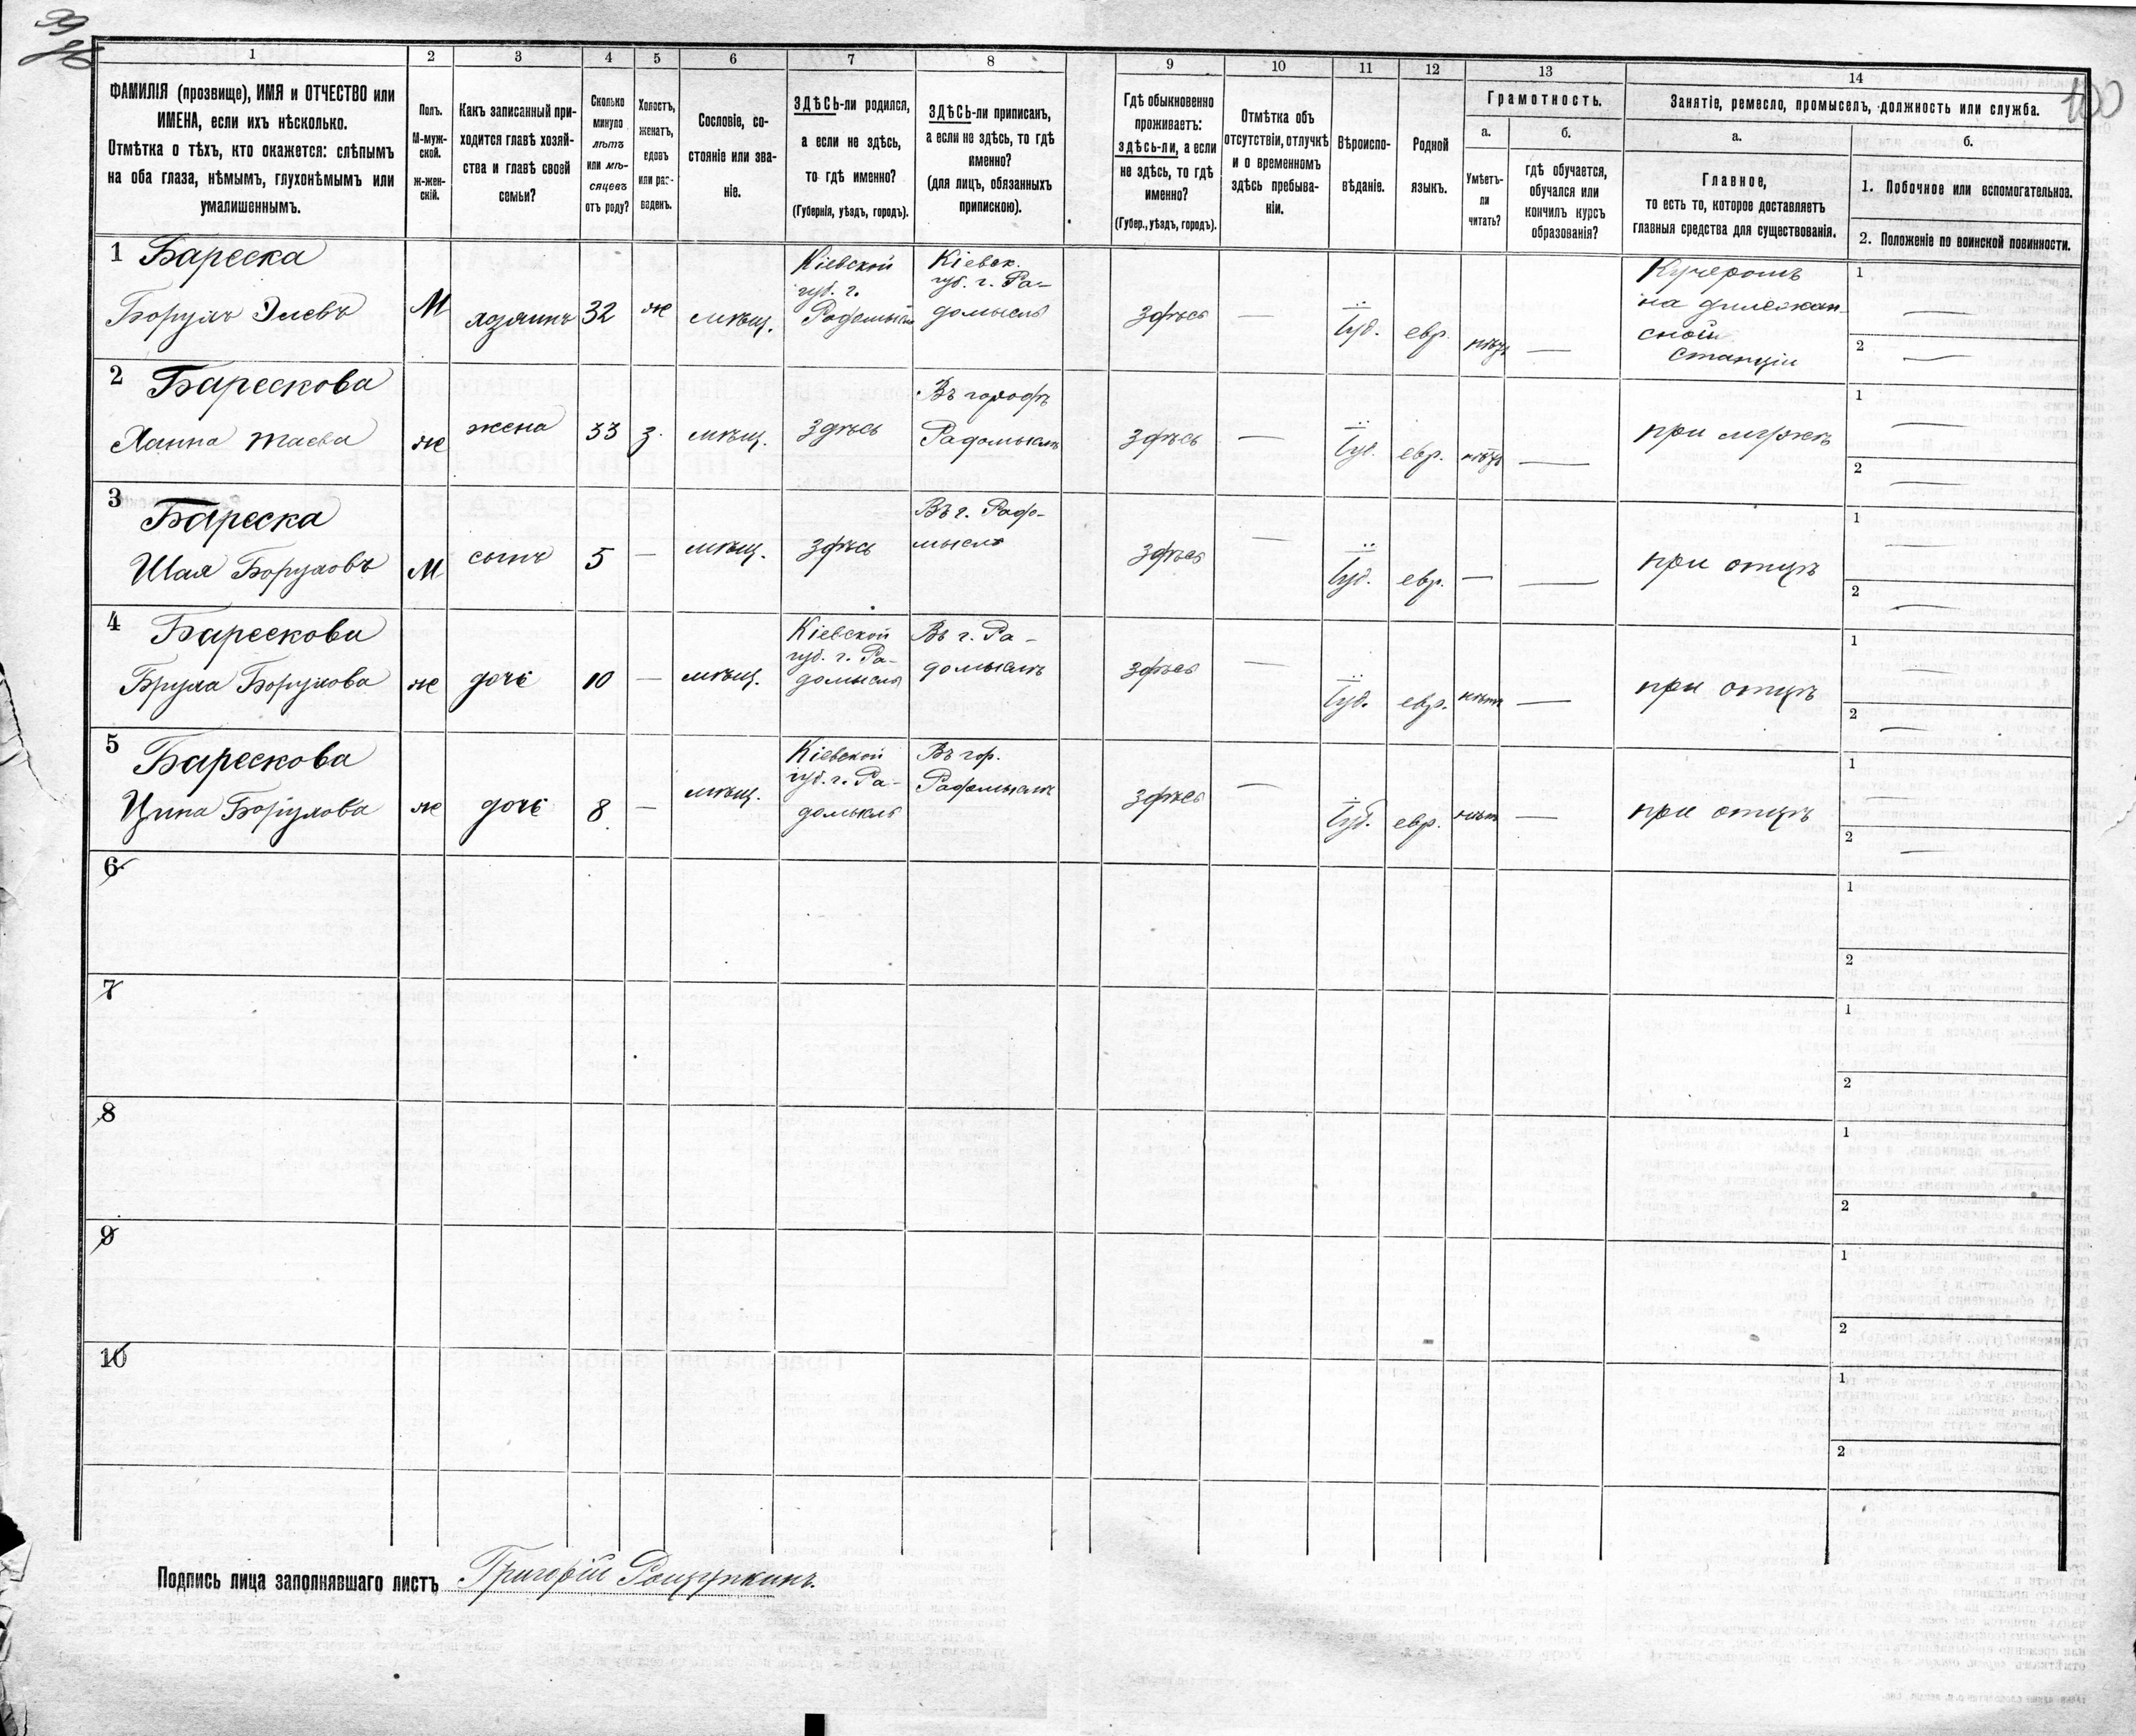 99
100
1 2 3 4 5 6 7 8 9 10 11 12 13 14
ФАМИЛІЯ (прозвище), ИМЯ и ОТЧЕСТВО или
ИМЕНА, если ихъ нѣсколько.
Отмѣтка о тѣхъ, кто окажется: слѣпымъ
на оба глаза, нѣмымъ, глухонѣмымъ или
умалишеннымъ.
Полъ.
М-муж-
ской.
ж-жен-
скій.
Какъ записанный при-
ходится главѣ хозяй-
ства и главѣ своей
семьи?
Сколько
минуло
лѣтъ
или мѣ-
сяцевъ
отъ роду?
Холостъ,
женатъ,
вдовъ
или раз-
веденъ.
Сословіе, со-
стояніе или зва-
ніе.
ЗДѢСЬ-ли родился,
а если не здѣсь,
то гдѣ именно?
(Губернія, уѣздъ, городъ).
ЗДѢСЬ-ли приписанъ,
а если не здѣсь, то гдѣ
именно?
(для лицъ, обязанныхъ
припискою).
Гдѣ обыкновенно
проживаетъ:
здѣсь-ли, а если
не здѣсь, то гдѣ
именно?
(Губер., уѣздъ, городъ).
Отмѣтка объ
отсутствіи, отлучкѣ
и о временномъ
здѣсь пребыва-
ніи.
Вѣроиспо-
вѣданіе.
Родной
языкъ.
Грамотность.
а.
Умѣетъ-
ли
читать?
б.
гдѣ обучается,
обучался или
кончилъ курсъ
образованія?
Занятіе, ремесло, промыселъ, должность или служба.
а.
Главное,
то есть то, которое доставляетъ
главныя средства для существованія.
б.
1. Побочное или вспомогательное.
2. Положеніе по воинской повинности.
1 Бареска
Борухъ Элевъ
М
хозяинъ
32
ж
мѣщ.
Кіевской
губ. г.
Радомысль
Кіевск.
губ. г. Ра-
домысль
Здѣсь
—
Іуд.
евр.
—
Кучеромъ
на дилежан
сной
станціи
1 —
2 —
2 Барескова
Ханна
ж
жена
33
з.
мѣщ.
Здѣсь
Въ городѣ
Радомыслѣ
Здѣсь
—
Іуд.
евр.
—
при мужѣ
1 —
2 —
3 Бареска
Шая Боруховъ
М
сынъ
5
—
мѣщ.
Здѣсь
Въ г. Радо-
мыслѣ
Здѣсь
—
Іуд.
евр.
—
—
при отцѣ
1 —
2 —
4 Барескова
Борухова
ж
дочь
10
—
мѣщ.
Кіевской
губ. г. Ра-
домысль
Въ г. Ра-
домыслѣ
Здѣсь
—
Іуд.
евр.
нѣтъ
—
при отцѣ
1 —
2 —
5 Барескова
Ципа Борухова
ж
дочь
8
—
мѣщ.
Кіевской
губ. г. Ра-
домысль
Въ гор.
Радомыслѣ
Здѣсь
—
Іуд.
евр.
нѣтъ
—
при отцѣ
1 —
2 —
6
1
2
7
1
2
8
1
2
9
1
2
10
1
2
Подпись лица заполнявшаго листъ Григорій